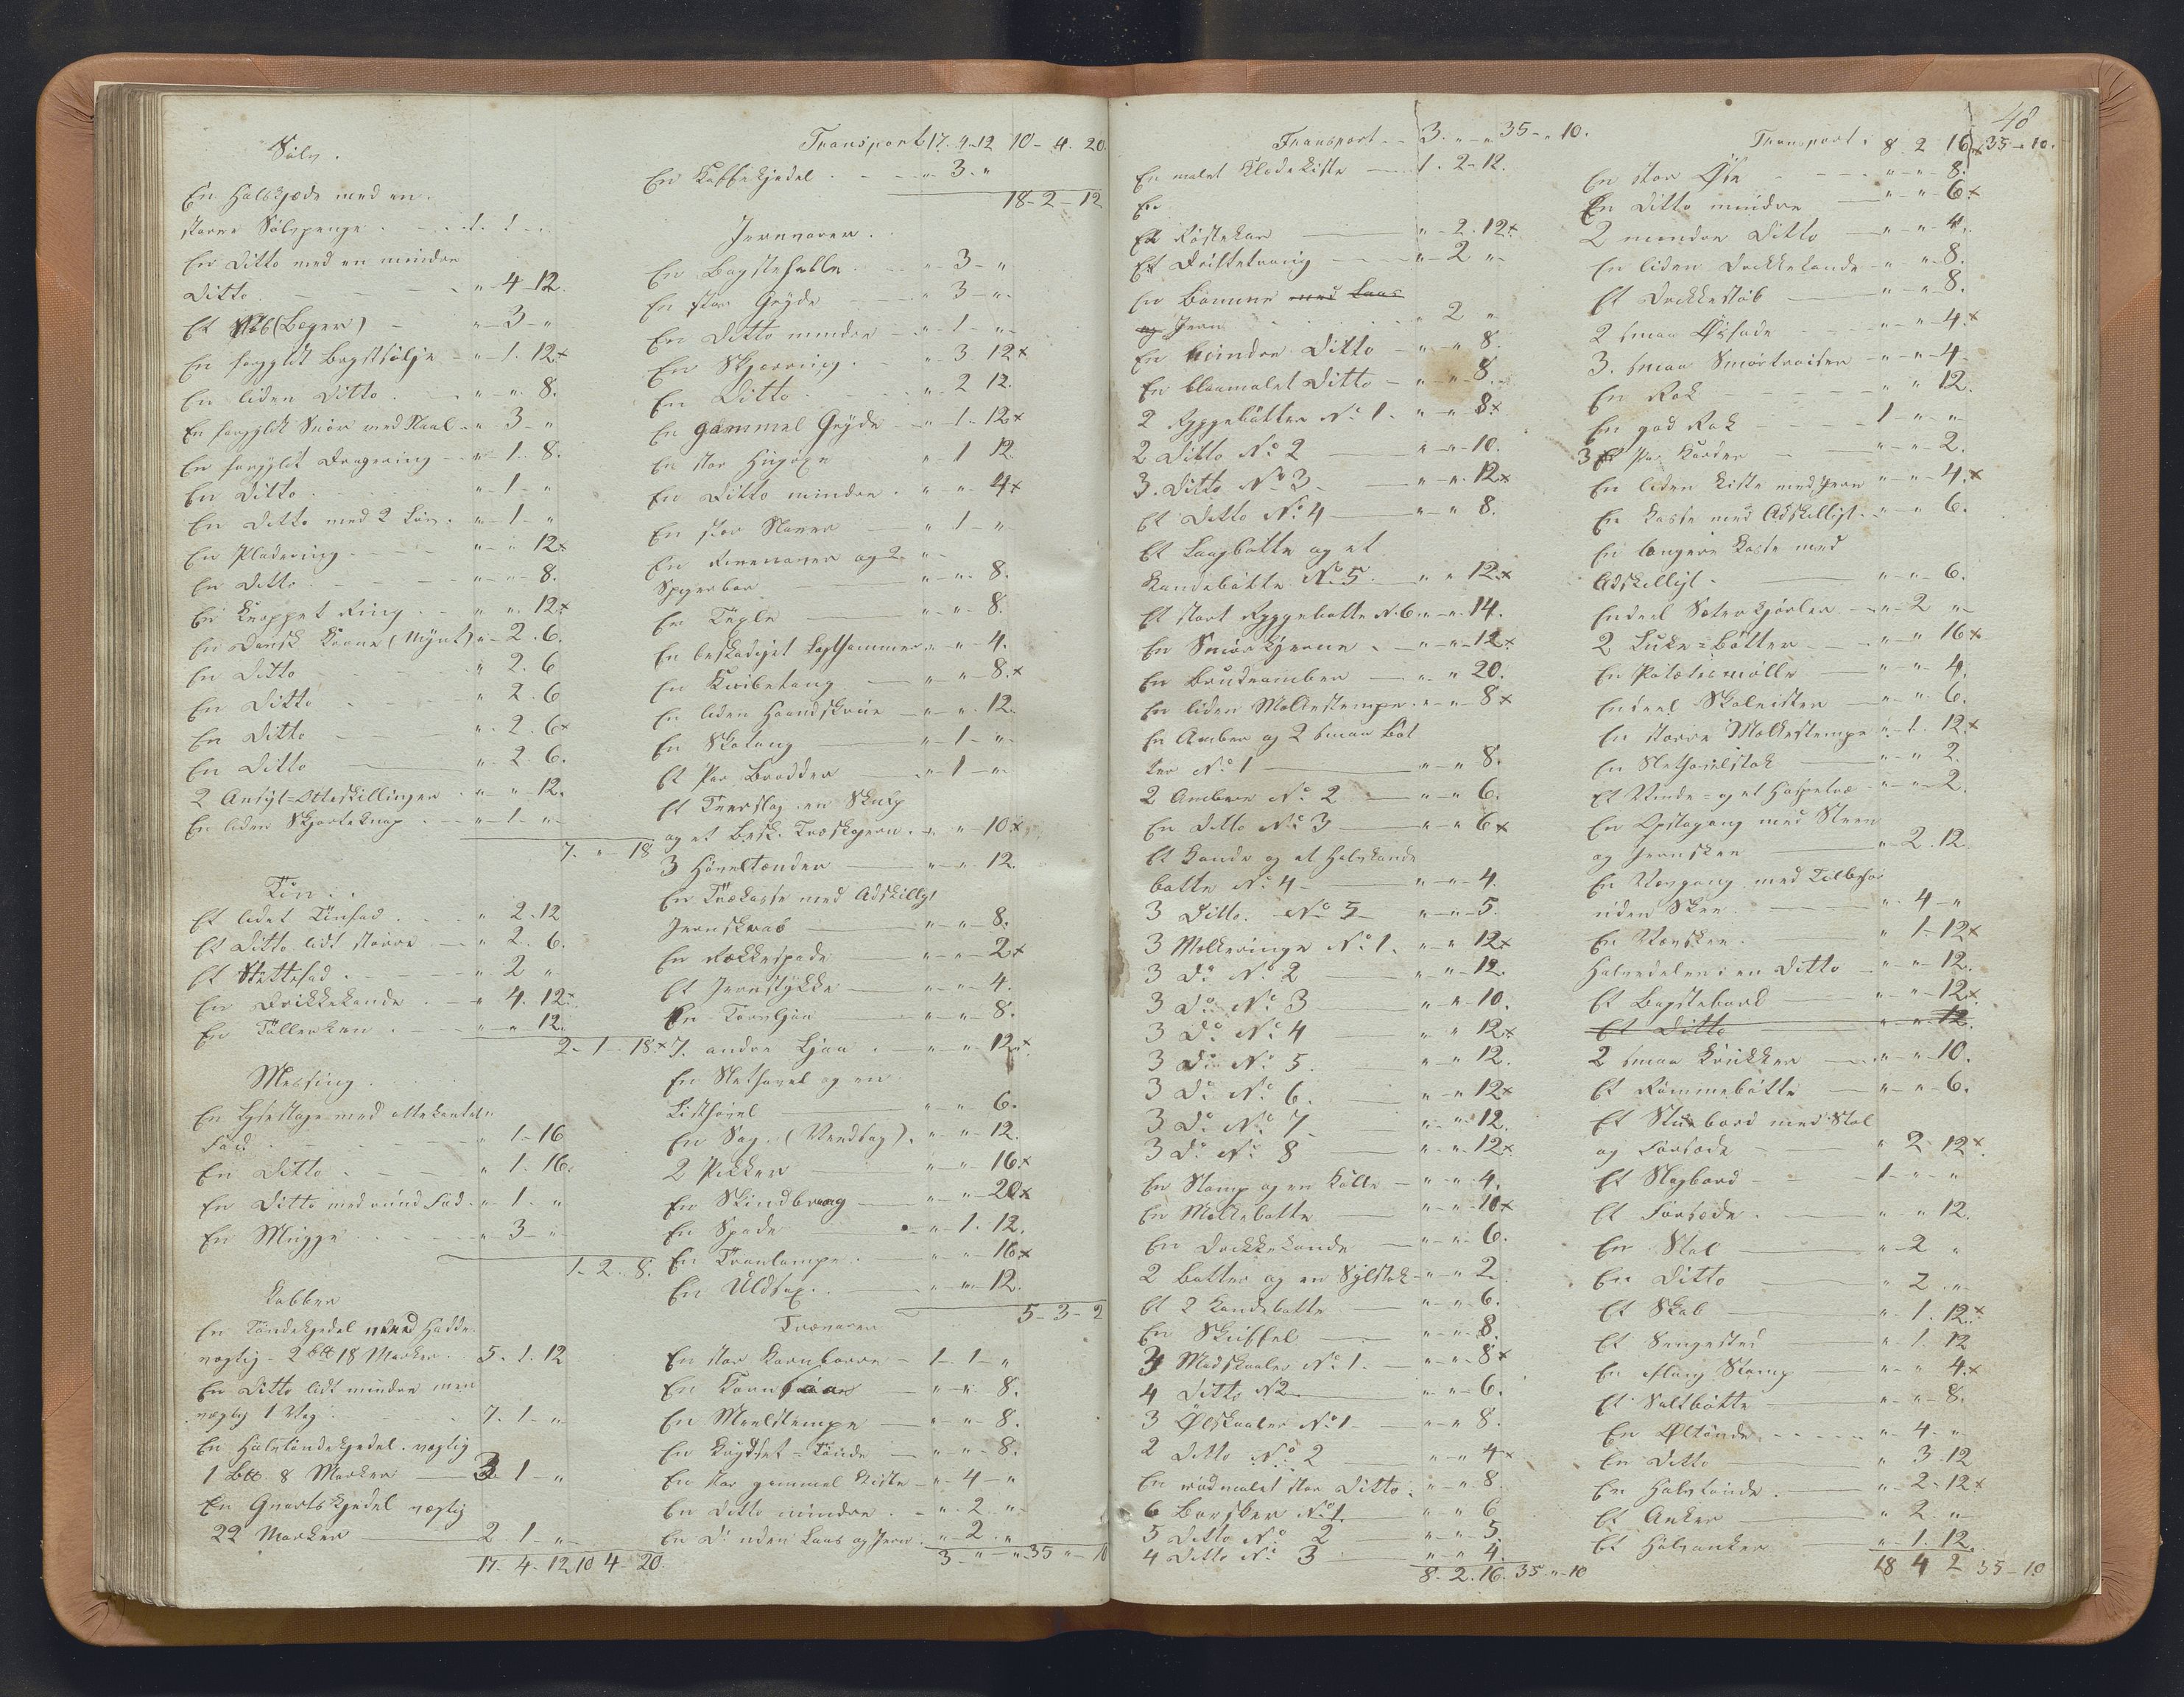 Sølv.
En Halskjæde med en
større Sølvpenge . - - 1. 1 - "
En Ditto med en mindre
Ditto . - - - " 4 12.
Et Støb (Bæger) - " 3 - "
En forgyldt Brystsølje - " 1. 12x
En liden Ditto . - " - " 8.
En forgyldt Snør med Naal - " 3 - "
En forgyldt Dragering - " 1. 8.
En Ditto . - " 1 - "
En Ditto med 2 Løv. " - 1 - "
En Pladering . - - " " 12x
En Ditto . - - " - " 8.
En Knoppet Ring . - " " 12x
En Dansk Krone (Mynt) " - 2. 6.
En Ditto " 2. 6
En Ditto . - " 2. 6
En Ditto - " 2. 6x
En Ditto " 2. 6.
2 Ditto Otteskillinger . " - " 12.
En liden Skjorteknap . - " 1 - "
7. " - 18
Tin.
Et lidet Tinfad . - " 2. 12
Et Ditto lidt større - " 2. 6.
Et Slettefad . - - " 2 "
En Drikkekande . - " 4. 12x
En Tallerken . - " " 12.
2 - 1 - 18x
Messing.
En Lysestage med ottekantet
Fod . - - " 1 - 16
En Ditto . - " 1. 16.
En Ditto med rund Fod . " 1 - "
En Mugge . - - " 3 - "
1 - 2. 8.
Kobber
En Tøndekjedel med Hadde
vægtig - 2 Btt 18 Marker . 5. 1. 12
En Ditto lidt mindre men
vægtig 1 Vog . - - 7. 1 - "
En Halvtøndekjedel . vægtig
1 Btt 8 Marker - 3. 1 - "
En Qvartskjedel vægtig
22 Marker - 2 1 - "
17. 4. 12 10 4 - 20.
Transport 17. 4 - 12 10 - 4. 20.
En Kaffekjedel . - - " 3 - "
18 - 2 - 12
Jernvarer.
En Bagstehelle . " - 3 - "
En stor Gryde - " 3 - "
En Ditto mindre - " 1 - "
En Skjærring . - " 3 12x
En Ditto . " 2 12.
En gammel Gryde - " 1 - 12x
En stor Hugøxe " 1 12
En Ditto mindre . " " 4x
En stor Naver - " 1 - "
En Rivenaver og 2
Spigerbor - " - " 8.
En Tægle - " - " 8.
En beskadiget Lagthammer . " - 4.
En Knibetang - " - " 8.x
En liden Haandskrue - " - " 12.
En Skotang - " - 1 - "
Et Par Brodder - " - 1 - "
Et Tverslag en Skulp
og et Besk. Træskjern . " - " 10x
3 Høveltænder - " - " 12.
En Trækasse med Adskilligt
Jernskrab - " - " 8.
En Rækkespade - " - " 2x
Et Jernstykke - " - " 4.
En Torvljaa - " - " 8.
7. andre Ljaa . - " - " 12x
En Slethøvel og en
Listhøvel - " " 6.
En Sag . (Vendsag) . " " 12.
2 Pikker - " - " 16x
En Skindbrag - " - " 20x
En Spade - " 1. 12.
En Tranlampe . " - " 16x
En Uldsax . - " - " 12.
5 - 3 - 2
Trævarer
En stor Kornbørre - 1 - 1 - "
En Kornsaar - " " 8.
En Meelstampe - " - " 8.
En Krydset Tønde - " - " 8.
En stor gammel Kiste - " 4 - "
En Ditto mindre . - " 2 "
En Do uden Laas og Jern . " 2 . "
3 - " - " 35 " - 10
Transport - - 3. " - " 35 - " 10.
En malet Klædekiste - 1. 2 - 12.
En
Et Røstekar - " - 2. 12x
Et Driftetroug - " - 2 "
En Bomme med Laas
og Jern . . . " 2 "
En mindre Ditto - " - " 8.
En blaamalet Ditto - " - " 8.
2 Ryggebøtter No 1. " - " 8x
2 Ditto No 2 - " - " 10.
3. Ditto No 3 - " - " 12x
Et Ditto No 4 - " - " 8.
Et Laagbøtte og et
Kandebøtte No 5. - " " 12x
Et stort Ryggebøtte N. 6 " - " 14.
En Smørkjerne . - " - " 12x
En Brudeamber - " " 20.
En liden Moldestampe . " - " 8x
En Amber og 2 smaa Bøt
ter No 1 - " - " 8.
2 Ambere No 2 - " - " 6.
En Ditto No 3 - " - " 6x
Et Kande og et Halvkande
bøtte No 4 - " - " 4.
3 Ditto. No 5 " - " 5.
3 Molkeringe No 1. " - " 12x
3 Do No 2 - " - " 12.
3 Do No 3 " " 10.
3 Do No 4 " " 12x
3 Do No 5. " " 12.
3 Do No 6. - " " 12x
3 Do No 7 " - " 12.
3 Do No 8 - " - " 12x
En Stamp og en Kolle - " - " 4.
En Molkebøtte - " - " 10x
En Drikkekande - " - " 6.
2 Bøtter og en Syltstok - " " 2
Et 2 Kandebøtte - " - " 6.
En Skuffel - " - " 8.
4 Madskaaler No 1. - " - " 8x
4 Ditto N 2 - " - " 6.
3 Ølskaaler No 1 - " - " 8.
2 Ditto No 2 - " " 4x
En rødmalet stor Ditto . " - " 8.
6 Borsker No 1. " " 6
5 Ditto No 2 " - " 5.
4 Ditto No 3 " " 4.
8. 2. 16. 35 " - 10
48
Transport. 8 2 16 x 35 - " 10.
En stor Øse - " - " 8.
En Ditto mindre - " " 6x
2 mindre Ditto - " - " 4.
En liden Drikkekande - " - " 8.
Et Drikkestøb - " - " 8.
2 smaa Øsfade - " - " 4x
3. smaa Smørtraiser - " - " 4
En Rok - " " 12.
En god Rok - 1 - " "
3 Par Karder - " - " 2.
En liden Kiste med Jern " - " 4.x
En Kasse med Adskilligt . " " 6.
En længere Kasse med
Adskilligt - " - " 6.
Endeel Sæterkjørler - " - 2 "
2 Luke=Bøtter - " " 16x
En Potetesmølle - " - " 4.
Endeel Skoleister - " - " 6.
En større Moldestampe " 1. 12x
En Slethøvelstok " - " 2.
Et Vinde= og et Haspetræ - " - " 2.
En Opstagang med Steen
og Jernskee - " 2. 12
En Vævgang med Tilbehør
uden Skee - " 4 - "
En Vævskee . " 1 - 12x
Halvedelen i en Ditto - " - " 12.
Et Bagstebord - " - " 12x
Et Ditto - " - " 12.
2 smaa Krukker - " - " 10.
Et Rømmebøtte - " - " 6.
Et Stuebord med Stol
og Forsæde - " 2 12x
Et Slagbord - 1 - " "
Et Forsæde . - " " 12.
En Stol - " 2 "
En Ditto - " 2. "
Et Skab - " 1. 12x
Et Sengested - " 1 12
En Stamp - " " 4x
Et Saltbøtte - " - " 8.
En Øltønde - - - " 4. "
En Ditto - " 3 12
En Halvtønde . - " 2 - 12x
Et Anker - " 2. "
Et Halvanker " 1. 12.
18 4 2 35 - 10